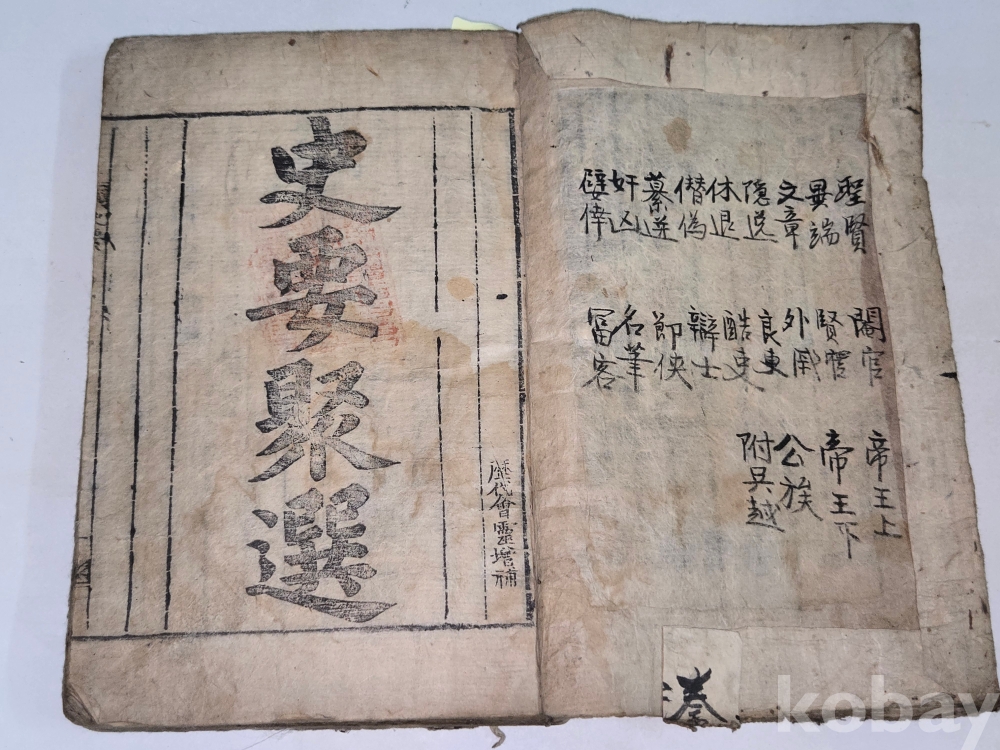 聖賢
異端
文章
隱逸
休退
僭偽
簒逆
奸凶
嬖倖
閹官
外戚
良吏
酷吏
辯士
節俠
名筆
富客
帝王上
帝王下
公族
附吳越
秦
歷代會靈增補
史要聚選
kobay